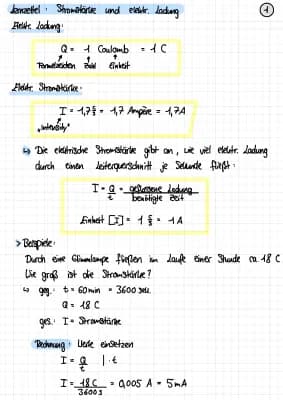 Lernzettel: Stromstärke und elektr. Ladung
1
Elektr. Ladung:
Q = 1 Coulomb = 1 C
Formelzeichen Zahl Einheit
Elektr. Stromstärke:
I = 1,7 C/s = 1,7 Ampère = 1,7A
"Intensity"
↳ Die elektrische Stromstärke gibt an, wie viel elektr. Ladung
durch einen Leiterquerschnitt je Sekunde fließt:
I = Q/t = geflossene Ladung / benötigte Zeit
Einheit [I] = 1 C/s = 1A
> Beispiele:
Durch eine Glimmlampe fließen im Laufe einer Stunde ca. 18 C
Wie groß ist die Stromstärke?
↳ geg.: t = 60min = 3600 sek.
Q = 18 C
ges.: I = Stromstärke
Rechnung: Werte einsetzen
I = Q/t | · t
I = 18 C / 3600 s = 0,005 A = 5mA